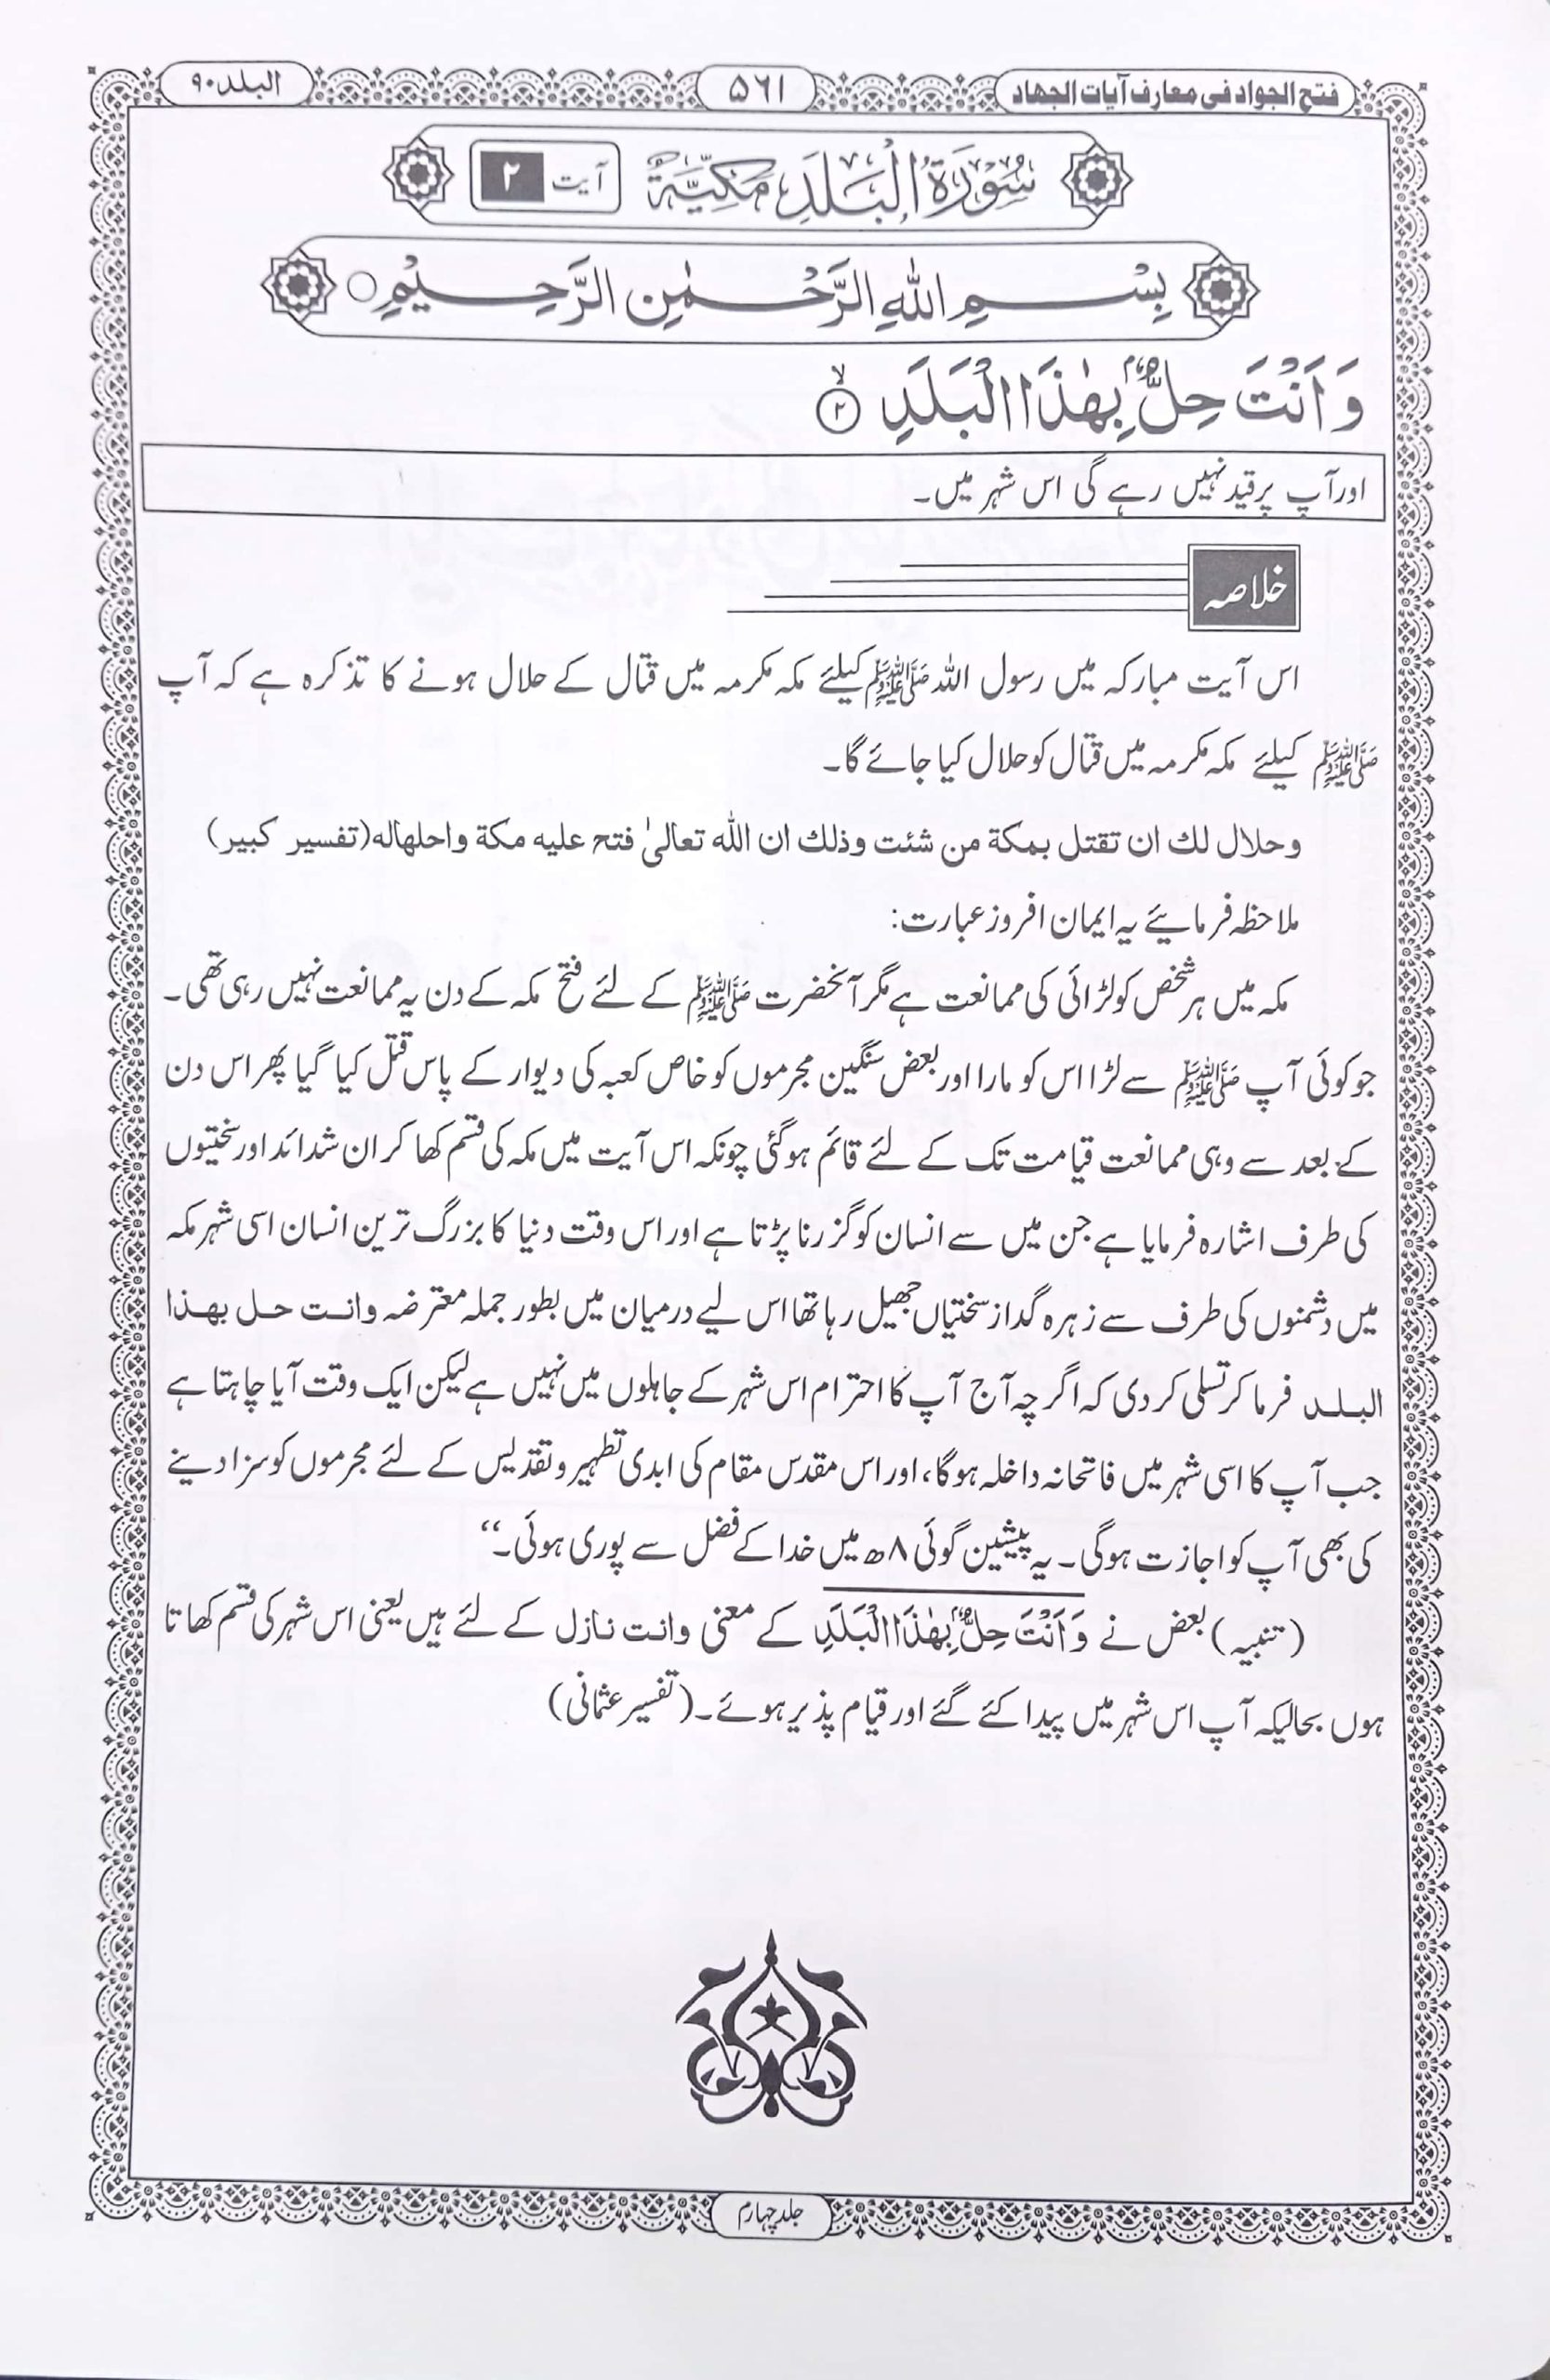 فتح الجواد فی معارف آیات الجهاد
۵۶۱
البلد۹۰
سُوْرَةُ الْبَلَدِ مَكِّيَّةٌ
آیت ۲
بِسْمِ اللهِ الرَّحْمٰنِ الرَّحِيْمِ
وَ اَنْتَ حِلٌّۢ بِهٰذَا الْبَلَدِ ۙ‏﴿۲﴾
اور آپ پر قید نہیں رہے گی اس شہر میں۔
خلاصہ
اس آیت مبارکہ میں رسول اللہ ﷺ کیلئے مکہ مکرمہ میں قتال کے حلال ہونے کا تذکرہ ہے کہ آپ
ﷺ کیلئے مکہ مکرمہ میں قتال کو حلال کیا جائے گا۔
وحلال لك ان تقتل بمكة من شئت وذلك ان الله تعالىٰ فتح عليه مكة واحلهاله (تفسیر کبیر)
ملاحظہ فرمائیے یہ ایمان افروز عبارت:
مکہ میں ہر شخص کو لڑائی کی ممانعت ہے مگر آنحضرت ﷺ کے لئے فتح مکہ کے دن یہ ممانعت نہیں رہی تھی۔
جو کوئی آپ ﷺ سے لڑا اس کو مارا اور بعض سنگین مجرموں کو خاص کعبہ کی دیوار کے پاس قتل کیا گیا پھر اس دن
کے بعد سے وہی ممانعت قیامت تک کے لئے قائم ہوگئی چونکہ اس آیت میں مکہ کی قسم کھا کر ان شدائد اور سختیوں
کی طرف اشارہ فرمایا ہے جن میں سے انسان کو گزرنا پڑتا ہے اور اس وقت دنیا کا بزرگ ترین انسان اسی شہر مکہ
میں دشمنوں کی طرف سے زہرہ گداز سختیاں جھیل رہا تھا اس لیے درمیان میں بطور جملہ معترضہ وانت حل بهذا
البلد فرما کر تسلی کردی کہ اگرچہ آج آپ کا احترام اس شہر کے جاہلوں میں نہیں ہے لیکن ایک وقت آیا چاہتا ہے
جب آپ کا اسی شہر میں فاتحانہ داخلہ ہوگا، اور اس مقدس مقام کی ابدی تطہیر و تقدیس کے لئے مجرموں کو سزا دینے
کی بھی آپ کو اجازت ہوگی۔ یہ پیشین گوئی ۸ھ میں خدا کے فضل سے پوری ہوئی۔“
(تنبیہ) بعض نے وَ اَنْتَ حِلٌّۢ بِهٰذَا الْبَلَدِ کے معنی وانت نازل کے لئے ہیں یعنی اس شہر کی قسم کھاتا
ہوں بحالیکہ آپ اس شہر میں پیدا کئے گئے اور قیام پذیر ہوئے۔ (تفسیر عثمانی)
جلد چہارم